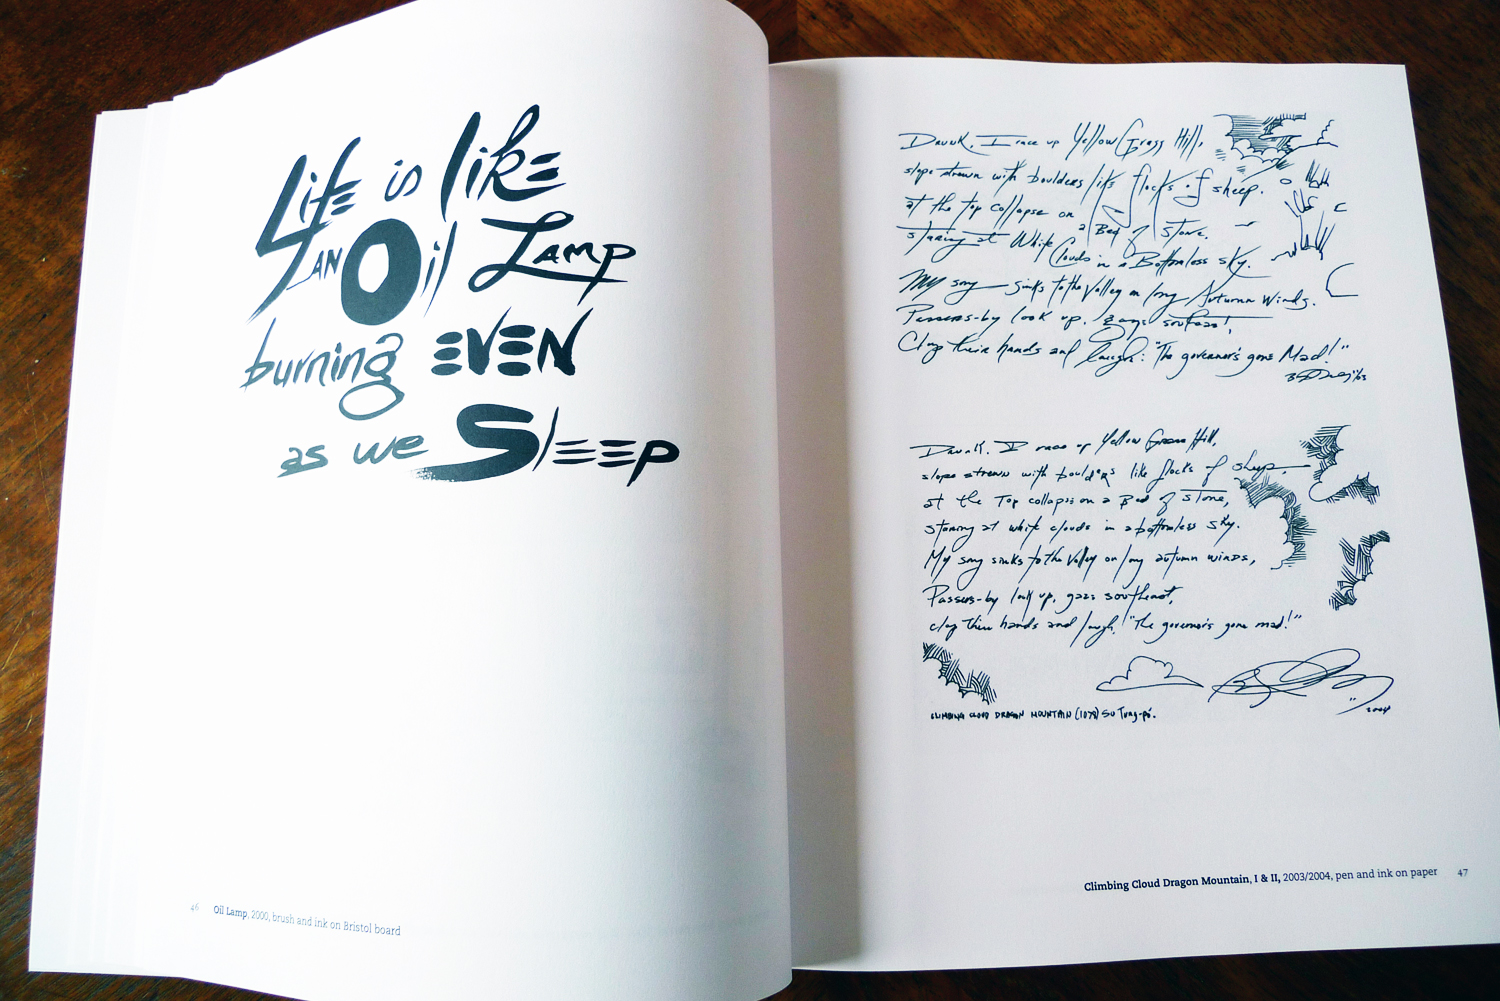 Life is like
AN Oil Lamp
burning EVEN
as we Sleep
46 Oil Lamp, 2000, brush and ink on Bristol board
Drunk, I race up Yellow Grass Hill,
slope strewn with boulders like flocks of sheep.
at the top collapse on a Bed of Stone.
staring at White Clouds in a Bottomless sky.
My song sinks to the Valley on long Autumn Winds.
Passers-by look up, gaze southeast,
Clap their hands and laugh: "The governor's gone Mad!"
Drunk, I race up Yellow Grass Hill,
slope strewn with boulders like flocks of sheep.
at the Top collapse on a Bed of Stone,
staring at white clouds in a bottomless sky.
My song sinks to the Valley on long autumn winds,
Passers-by look up, gaze southeast,
clap their hands and laugh, "The governor's gone mad!"
2004
CLIMBING CLOUD DRAGON MOUNTAIN (1078) SU Tung-po.
Climbing Cloud Dragon Mountain, I & II, 2003/2004, pen and ink on paper 47